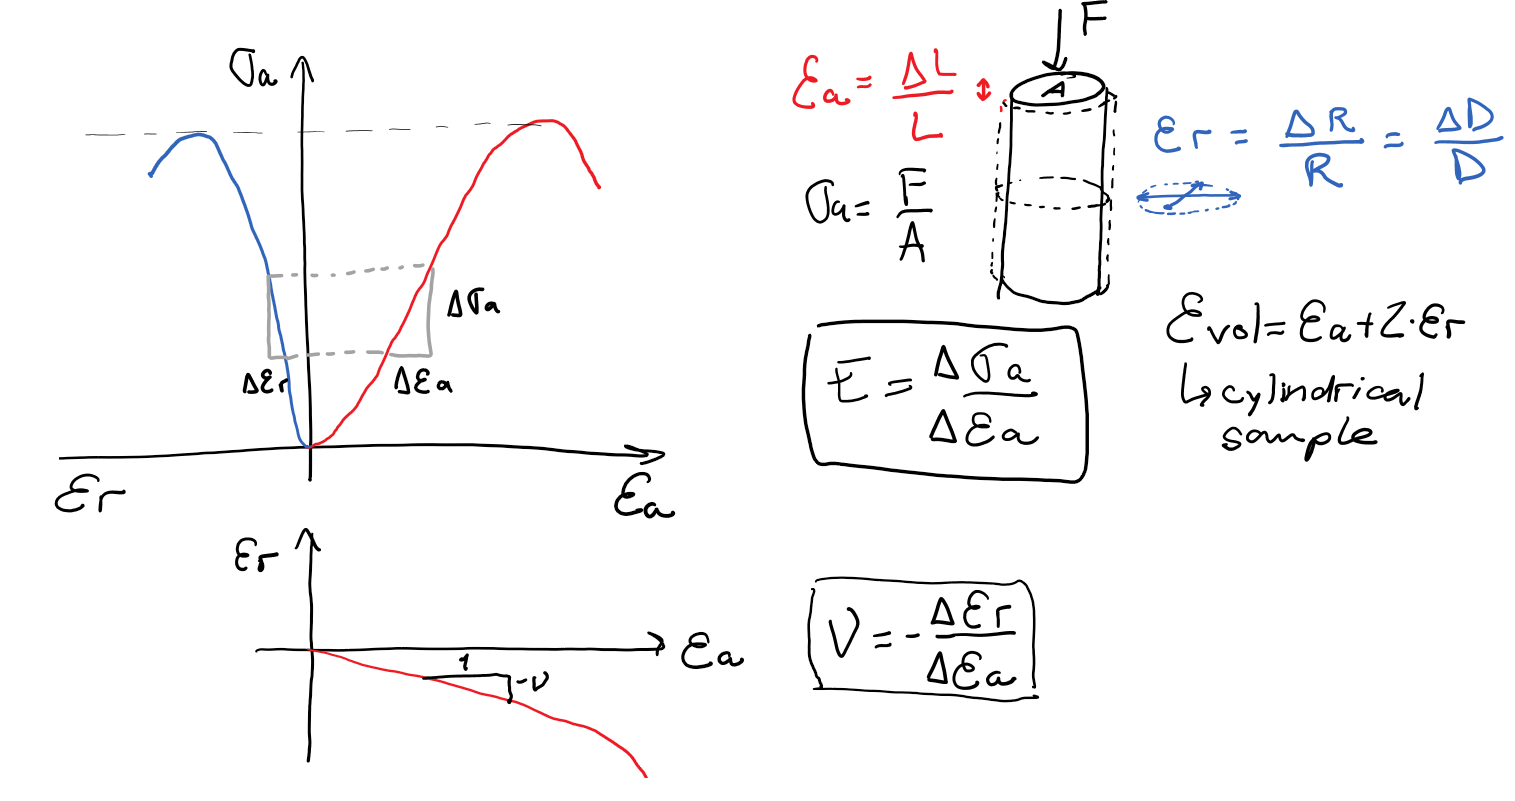 σa
εr
εa
Δσa
Δεr
Δεa
εr
εa
1
-ν
F
A
εa = ΔL / L
εr = ΔR / R = ΔD / D
σa = F / A
E = Δσa / Δεa
εvol = εa + 2·εr
↳ cylindrical
sample
ν = - Δεr / Δεa